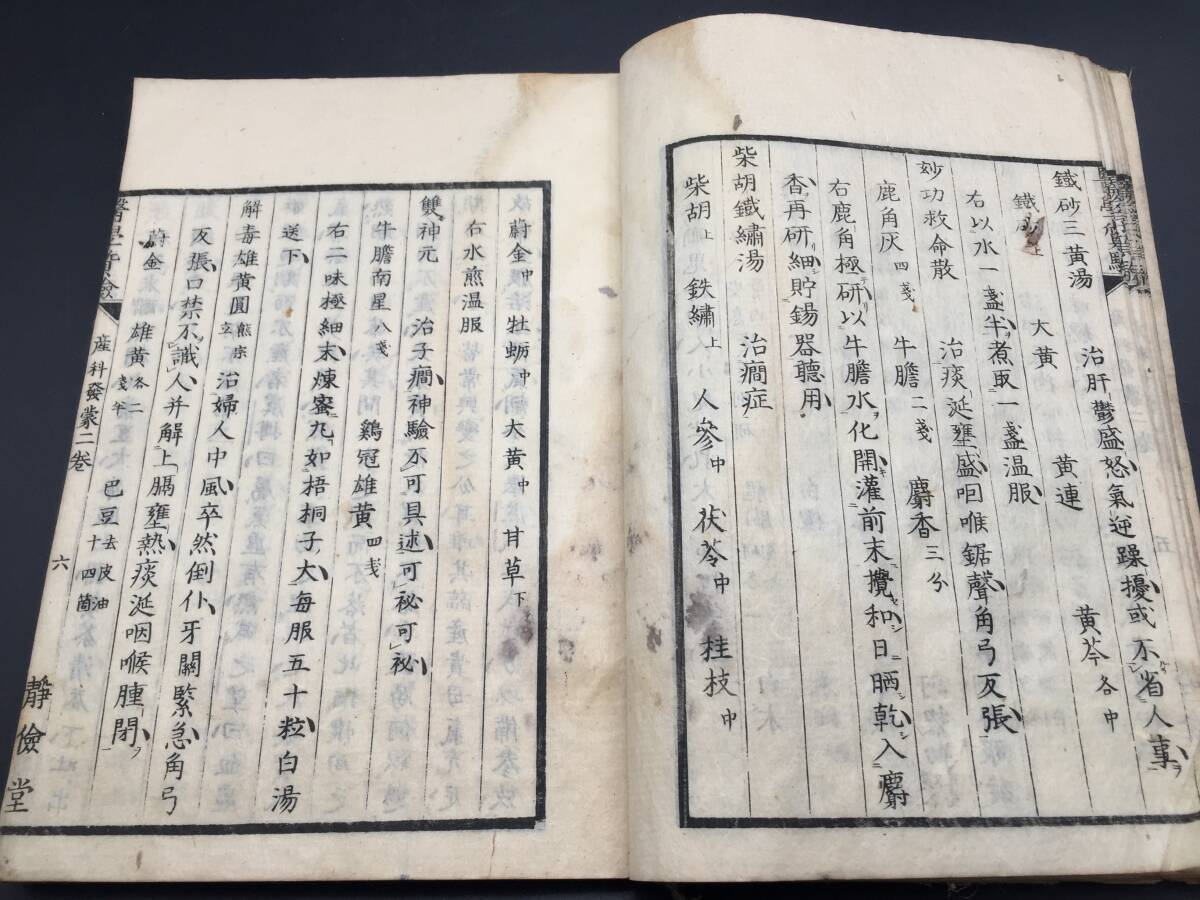 鐵砂三黄湯　治肝鬱盛怒氣逆躁擾或不省人事
鐵砂上　大黄　黄連　黄芩各中
右以水一盞半煮取一盞温服
妙功救命散　治痰涎壅盛呬喉鋸聲角弓反張
鹿角灰四戔　牛膽二戔　麝香三分
右鹿角極研以牛膽水化開灌前末攪和日晒乾入麝
香再研細貯錫器聽用
柴胡鐵繡湯　治癇症
柴胡上　鉄繡上　人參中　茯苓中　桂枝中
蔚金中　牡蛎中　大黄中　甘草下
右水煎温服
雙神元　治子癇神驗不可具述可秘可秘
牛膽南星八戔　鷄冠雄黄四戔
右二味極細末煉蜜丸如梧桐子大每服五十粒白湯
送下
解毒雄黄圓　治婦人中風卒然倒仆牙關緊急角弓
反張口禁不識人并解上膈壅熱痰涎咽喉腫閉
蔚金　雄黄各二戔半　巴豆去皮油十四箇
産科發蒙二卷
六
靜儉堂